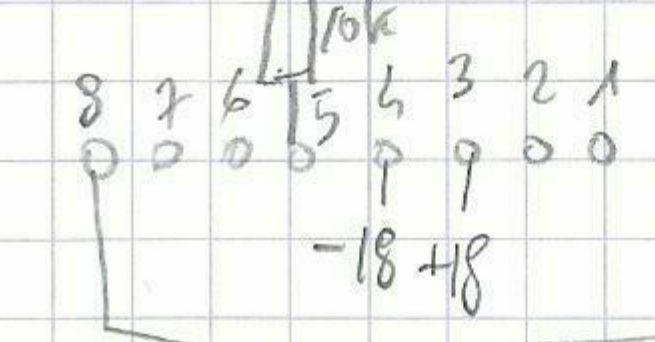 10k
8 7 6 5 4 3 2 1
-18 +18